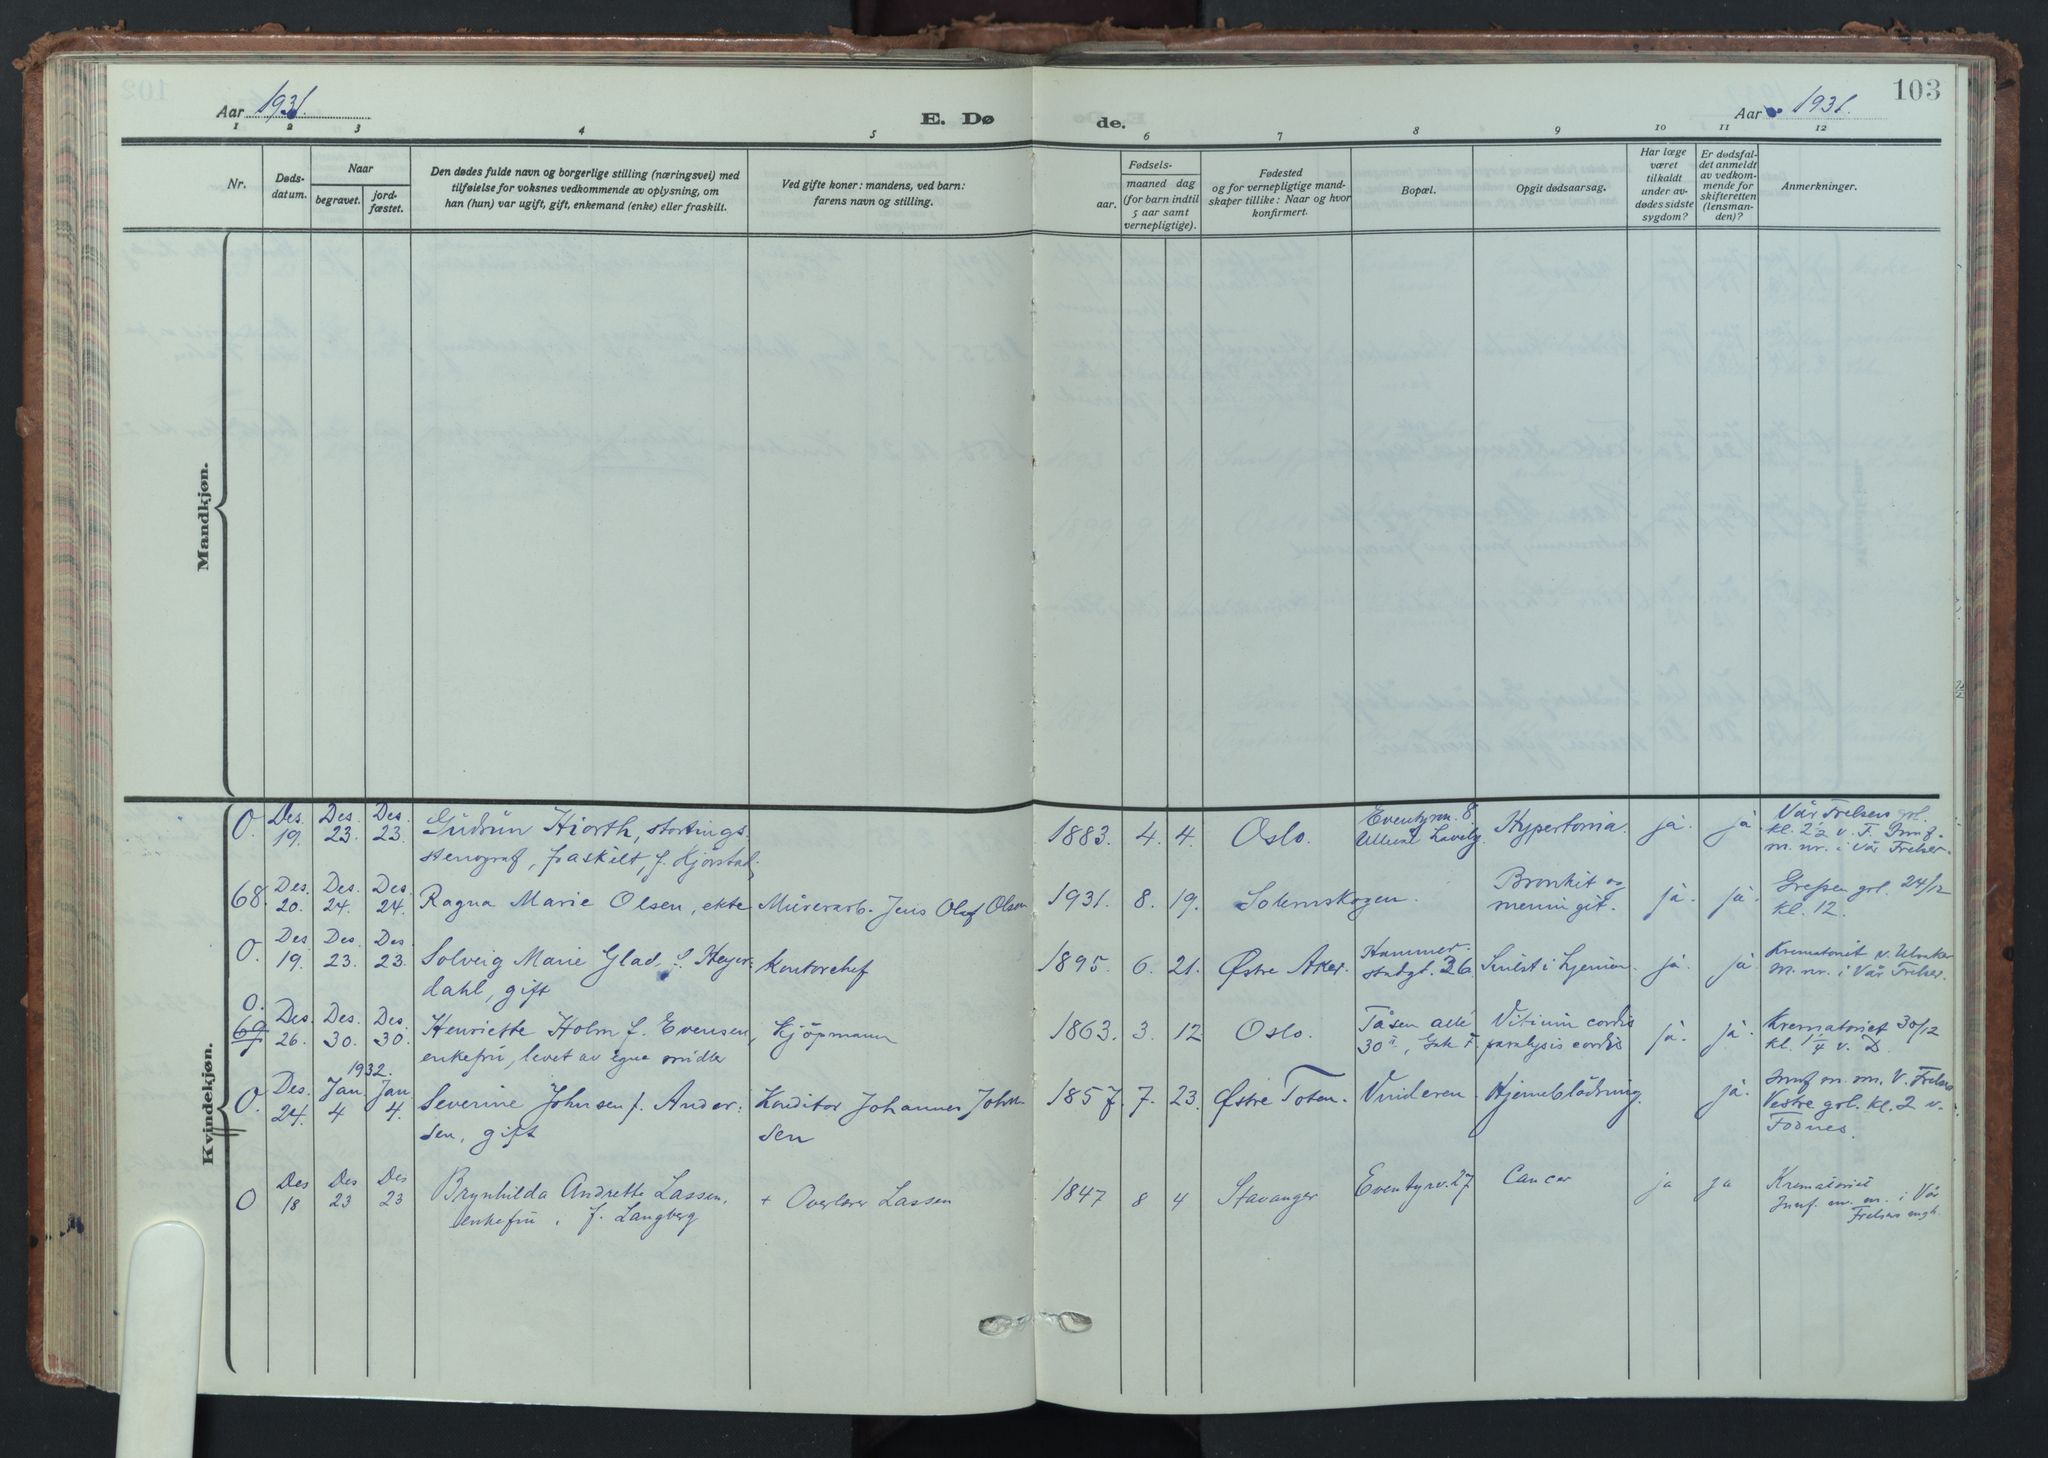 Aar 1931.
E. Dø
de.
Aar 1931.
103
1 2 3 4 5 6 7 8 9 10 11 12
Nr.
Døds-
datum.
Naar
begravet.
jord-
fæstet.
Den dødes fulde navn og borgerlige stilling (næringsvei) med
tilføielse for voksnes vedkommende av oplysning, om
han (hun) var ugift, gift, enkemand (enke) eller fraskilt.
Ved gifte koner: mandens, ved barn:
farens navn og stilling.
Fødsels-
aar.
maaned dag
(for barn indtil
5 aar samt
vernepligtige).
Fødested
og for vernepligtige mand-
skaper tillike: Naar og hvor
konfirmert.
Bopæl.
Opgit dødsaarsag.
Har læge
været
tilkaldt
under av-
dødes sidste
sygdom?
Er dødsfal-
det anmeldt
av vedkom-
mende for
skifteretten
(lensman-
den)?
Anmerkninger.
Mandkjøn.
Kvindekjøn.
0. Des. 19. Des. 23. Des. 23. Gudrun Hiorth, stortings-
stenograf, fraskilt, f. Kjørstad.
1883. 4. 4. Oslo. Eventyrv. 8. Ullevål Haveby Hypertonia. ja. ja.
Vår Frelsers grl.
kl. 2 1/2 v. F. Innf.
m. nr. i Vår Frelser.
68. Des. 20. Des. 24. Des. 24. Ragna Marie Olsen, ekte Murerarb. Jens Olaf Olsen
1931. 8. 19. Solemskogen. Bronkit og
meningit. ja. ja.
Grefsen grl. 24/12
kl. 12.
0. Des. 19. Des. 23. Des. 23. Solveig Marie Glad f. Heyer-
dahl, gift
Kontorchef
1895. 6. 21. Østre Aker. Hammer-
stadgt. 26 Svulst i hjernen. ja. ja.
Krematoriet v.
M. nr. i Vår Frelser.
0.
69 Des. 26. Des. 30. Des. 30. Henriette Holm f. Evensen,
enkefru, levet av egne midler
Kjøpmann
1863. 3. 12 Oslo. Tåsen allé
30 II, Vitium cordis
paralysis cordis ja. ja.
Krematoriet 30/12
kl. 1 1/4 v. D.
1932.
0. Des. 24. Jan 4 Jan 4. Severine Johnsen f. Ander-
sen, gift
Konditor Johannes John-
sen
1857. 7. 23. Østre Toten. Vinderen Hjerneblødning. ja.
Innf m. nr. V. Frelsers
Vestre grl. kl. 2 v.
Fodnes.
0 Des 18 Des 23 Des 23 Brynhilda Andrette Lassen,
enkefru, f. Langberg
+ Overlærer Lassen
1847 8 4 Stavanger Eventyrv. 27 Cancer ja ja
Krematoriet
Innf. m. nr. i Vår
Frelsers mgh.